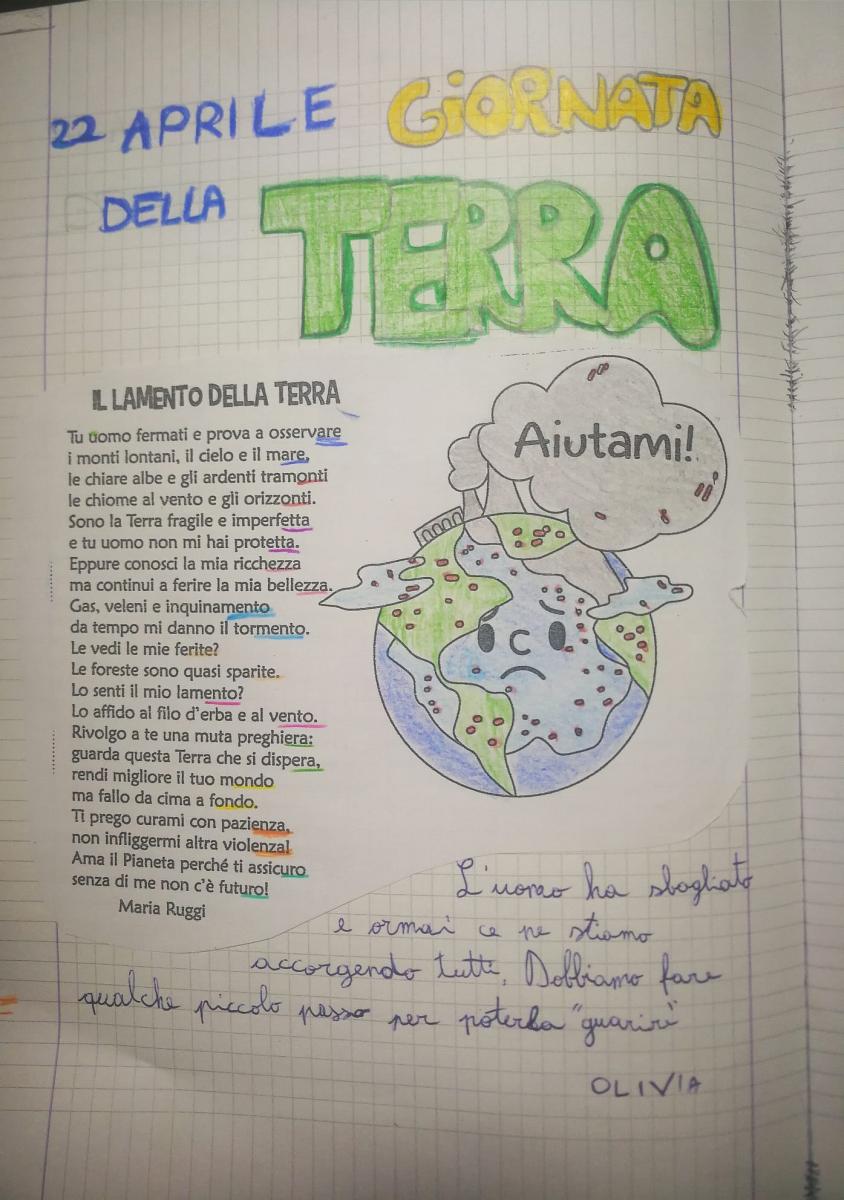 22 APRILE GiORNATA
DELLA TERRA
IL LAMENTO DELLA TERRA
Tu uomo fermati e prova a osservare
i monti lontani, il cielo e il mare,
le chiare albe e gli ardenti tramonti
le chiome al vento e gli orizzonti.
Sono la Terra fragile e imperfetta
e tu uomo non mi hai protetta.
Eppure conosci la mia ricchezza
ma continui a ferire la mia bellezza.
Gas, veleni e inquinamento
da tempo mi danno il tormento.
Le vedi le mie ferite?
Le foreste sono quasi sparite.
Lo senti il mio lamento?
Lo affido al filo d'erba e al vento.
Rivolgo a te una muta preghiera:
guarda questa Terra che si dispera,
rendi migliore il tuo mondo
ma fallo da cima a fondo.
Ti prego curami con pazienza,
non infliggermi altra violenza!
Ama il Pianeta perché ti assicuro
senza di me non c'è futuro!
Maria Ruggi
Aiutami!
L'uomo ha sbagliato
e ormai ce ne stiamo
accorgendo tutti. Dobbiamo fare
qualche piccolo passo per poterla "guarire"
OLIVIA